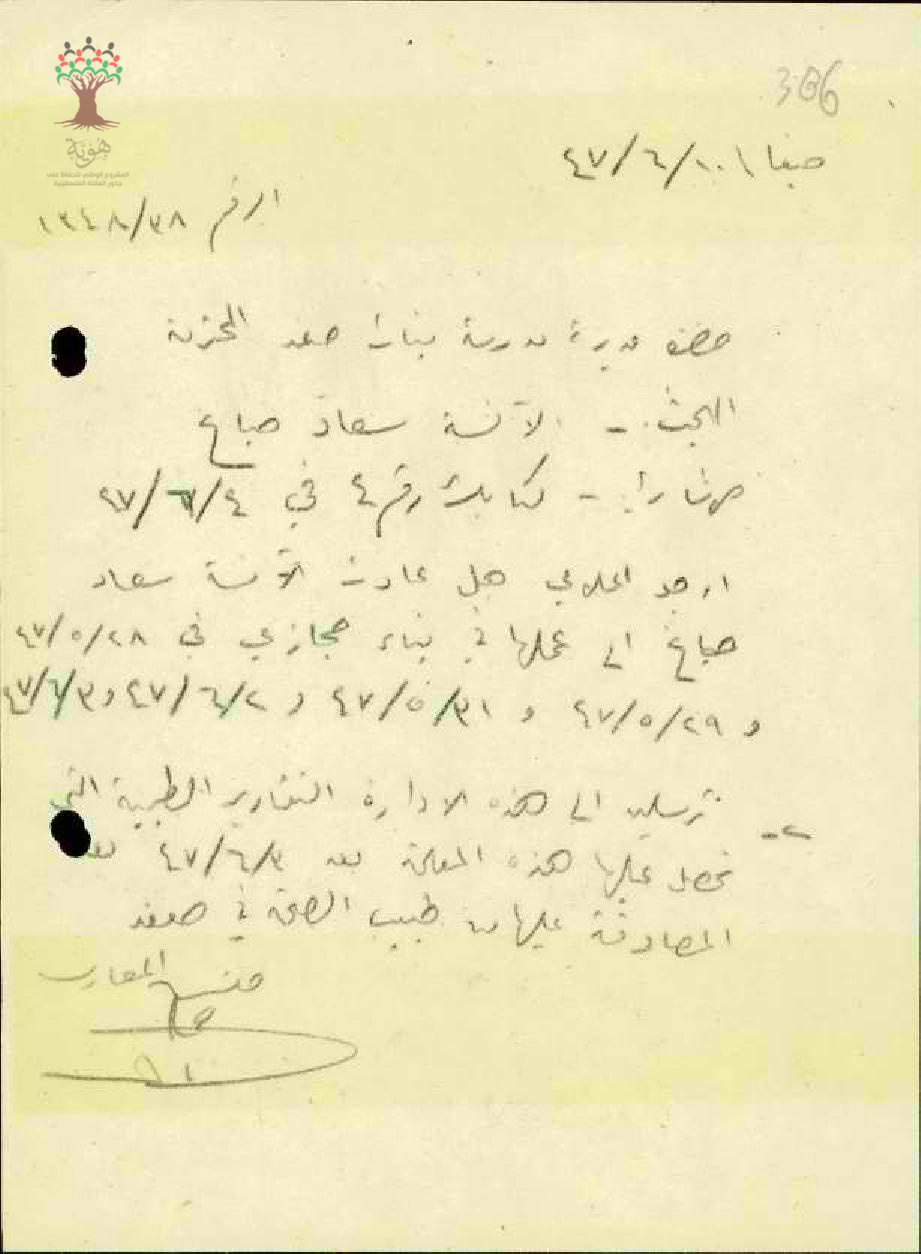 306
حيفا ١٠/٦/٤٧
الرقم ١٣٤٨/٣٨
هُوِيَّة
المشروع الوطني للحفاظ على
جذور العائلة الفلسطينية
حضرة مديرة مدرسة بنات صفد المحترمة
البحث :- الآنسة سعاد صباغ
:- كتابك رقم ٤ في ٤/٦/٤٧
ارجو اعلامي هل عادت الآنسة سعاد
صباغ الى عملها في بناء حجازي في ٢٨/٥/٤٧
و ٢٩/٥/٤٧ و ٣١/٥/٤٧ و ٢/٦/٤٧ و ٣/٦/٤٧
٢- ترسلين الى هذه الادارة التقارير الطبية التي
تحصل عليها هذه المعلمة بعد ٣/٦/٤٧ بعد
المصادقة عليها من طبيب الصحة في صفد
مفتش المعارف